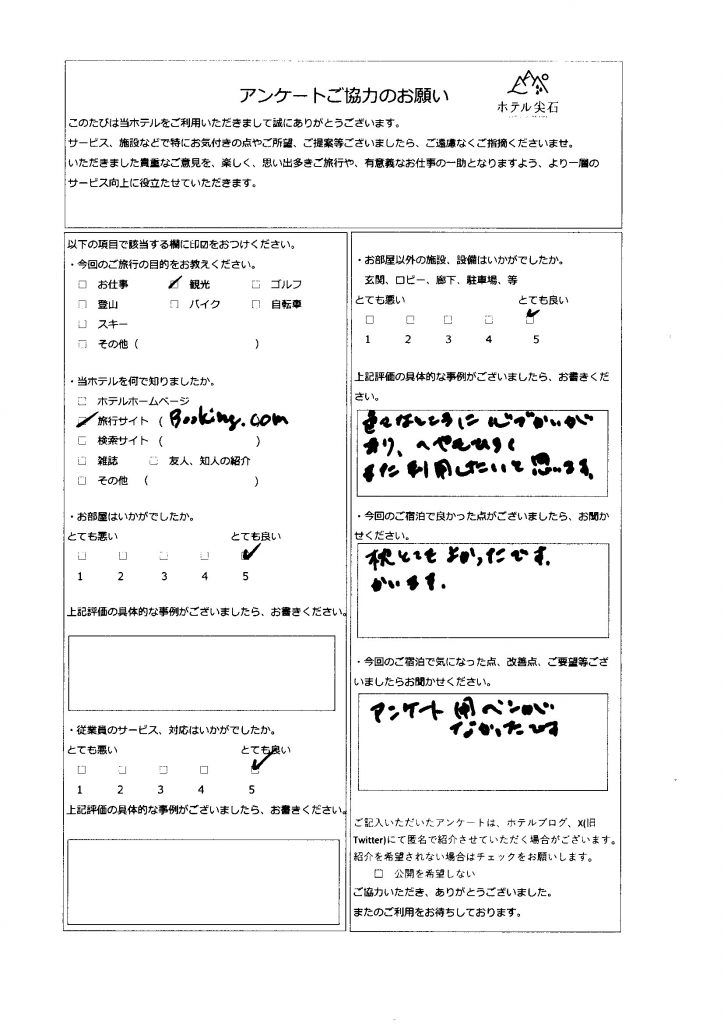 アンケートご協力のお願い
ホテル尖石
このたびは当ホテルをご利用いただきまして誠にありがとうございます。
サービス、施設などで特にお気付きの点やご所望、ご提案等ございましたら、ご遠慮なくご指摘くださいませ。
いただきました貴重なご意見を、楽しく、思い出多きご旅行や、有意義なお仕事の一助となりますよう、より一層の
サービス向上に役立たせていただきます。
以下の項目で該当する欄に印☑をおつけください。
・今回のご旅行の目的をお教えください。
□ お仕事 ☑ 観光 □ ゴルフ
□ 登山 □ バイク □ 自転車
□ スキー
□ その他 ( )
・当ホテルを何で知りましたか。
□ ホテルホームページ
☑ 旅行サイト ( Booking.com
□ 検索サイト ( )
□ 雑誌 □ 友人、知人の紹介
□ その他 ( )
・お部屋はいかがでしたか。
とても悪い とても良い
□ □ □ □ ☑
1 2 3 4 5
上記評価の具体的な事例がございましたら、お書きください。
・従業員のサービス、対応はいかがでしたか。
とても悪い とても良い
□ □ □ □ ☑
1 2 3 4 5
上記評価の具体的な事例がございましたら、お書きください。
・お部屋以外の施設、設備はいかがでしたか。
玄関、ロビー、廊下、駐車場、等
とても悪い とても良い
□ □ □ □ ☑
1 2 3 4 5
上記評価の具体的な事例がございましたら、お書きくだ
さい。
色々なところに心づかいが
あり、へやもひろく
また利用したいと思います。
・今回のご宿泊で良かった点がございましたら、お聞か
せください。
枕とてもよかったです。
かいます。
・今回のご宿泊で気になった点、改善点、ご要望等ござ
いましたらお聞かせください。
アンケート用ペンが
なかったです
ご記入いただいたアンケートは、ホテルブログ、X(旧
Twitter)にて匿名で紹介させていただく場合がございます。
紹介を希望されない場合はチェックをお願いします。
□ 公開を希望しない
ご協力いただき、ありがとうございました。
またのご利用をお待ちしております。